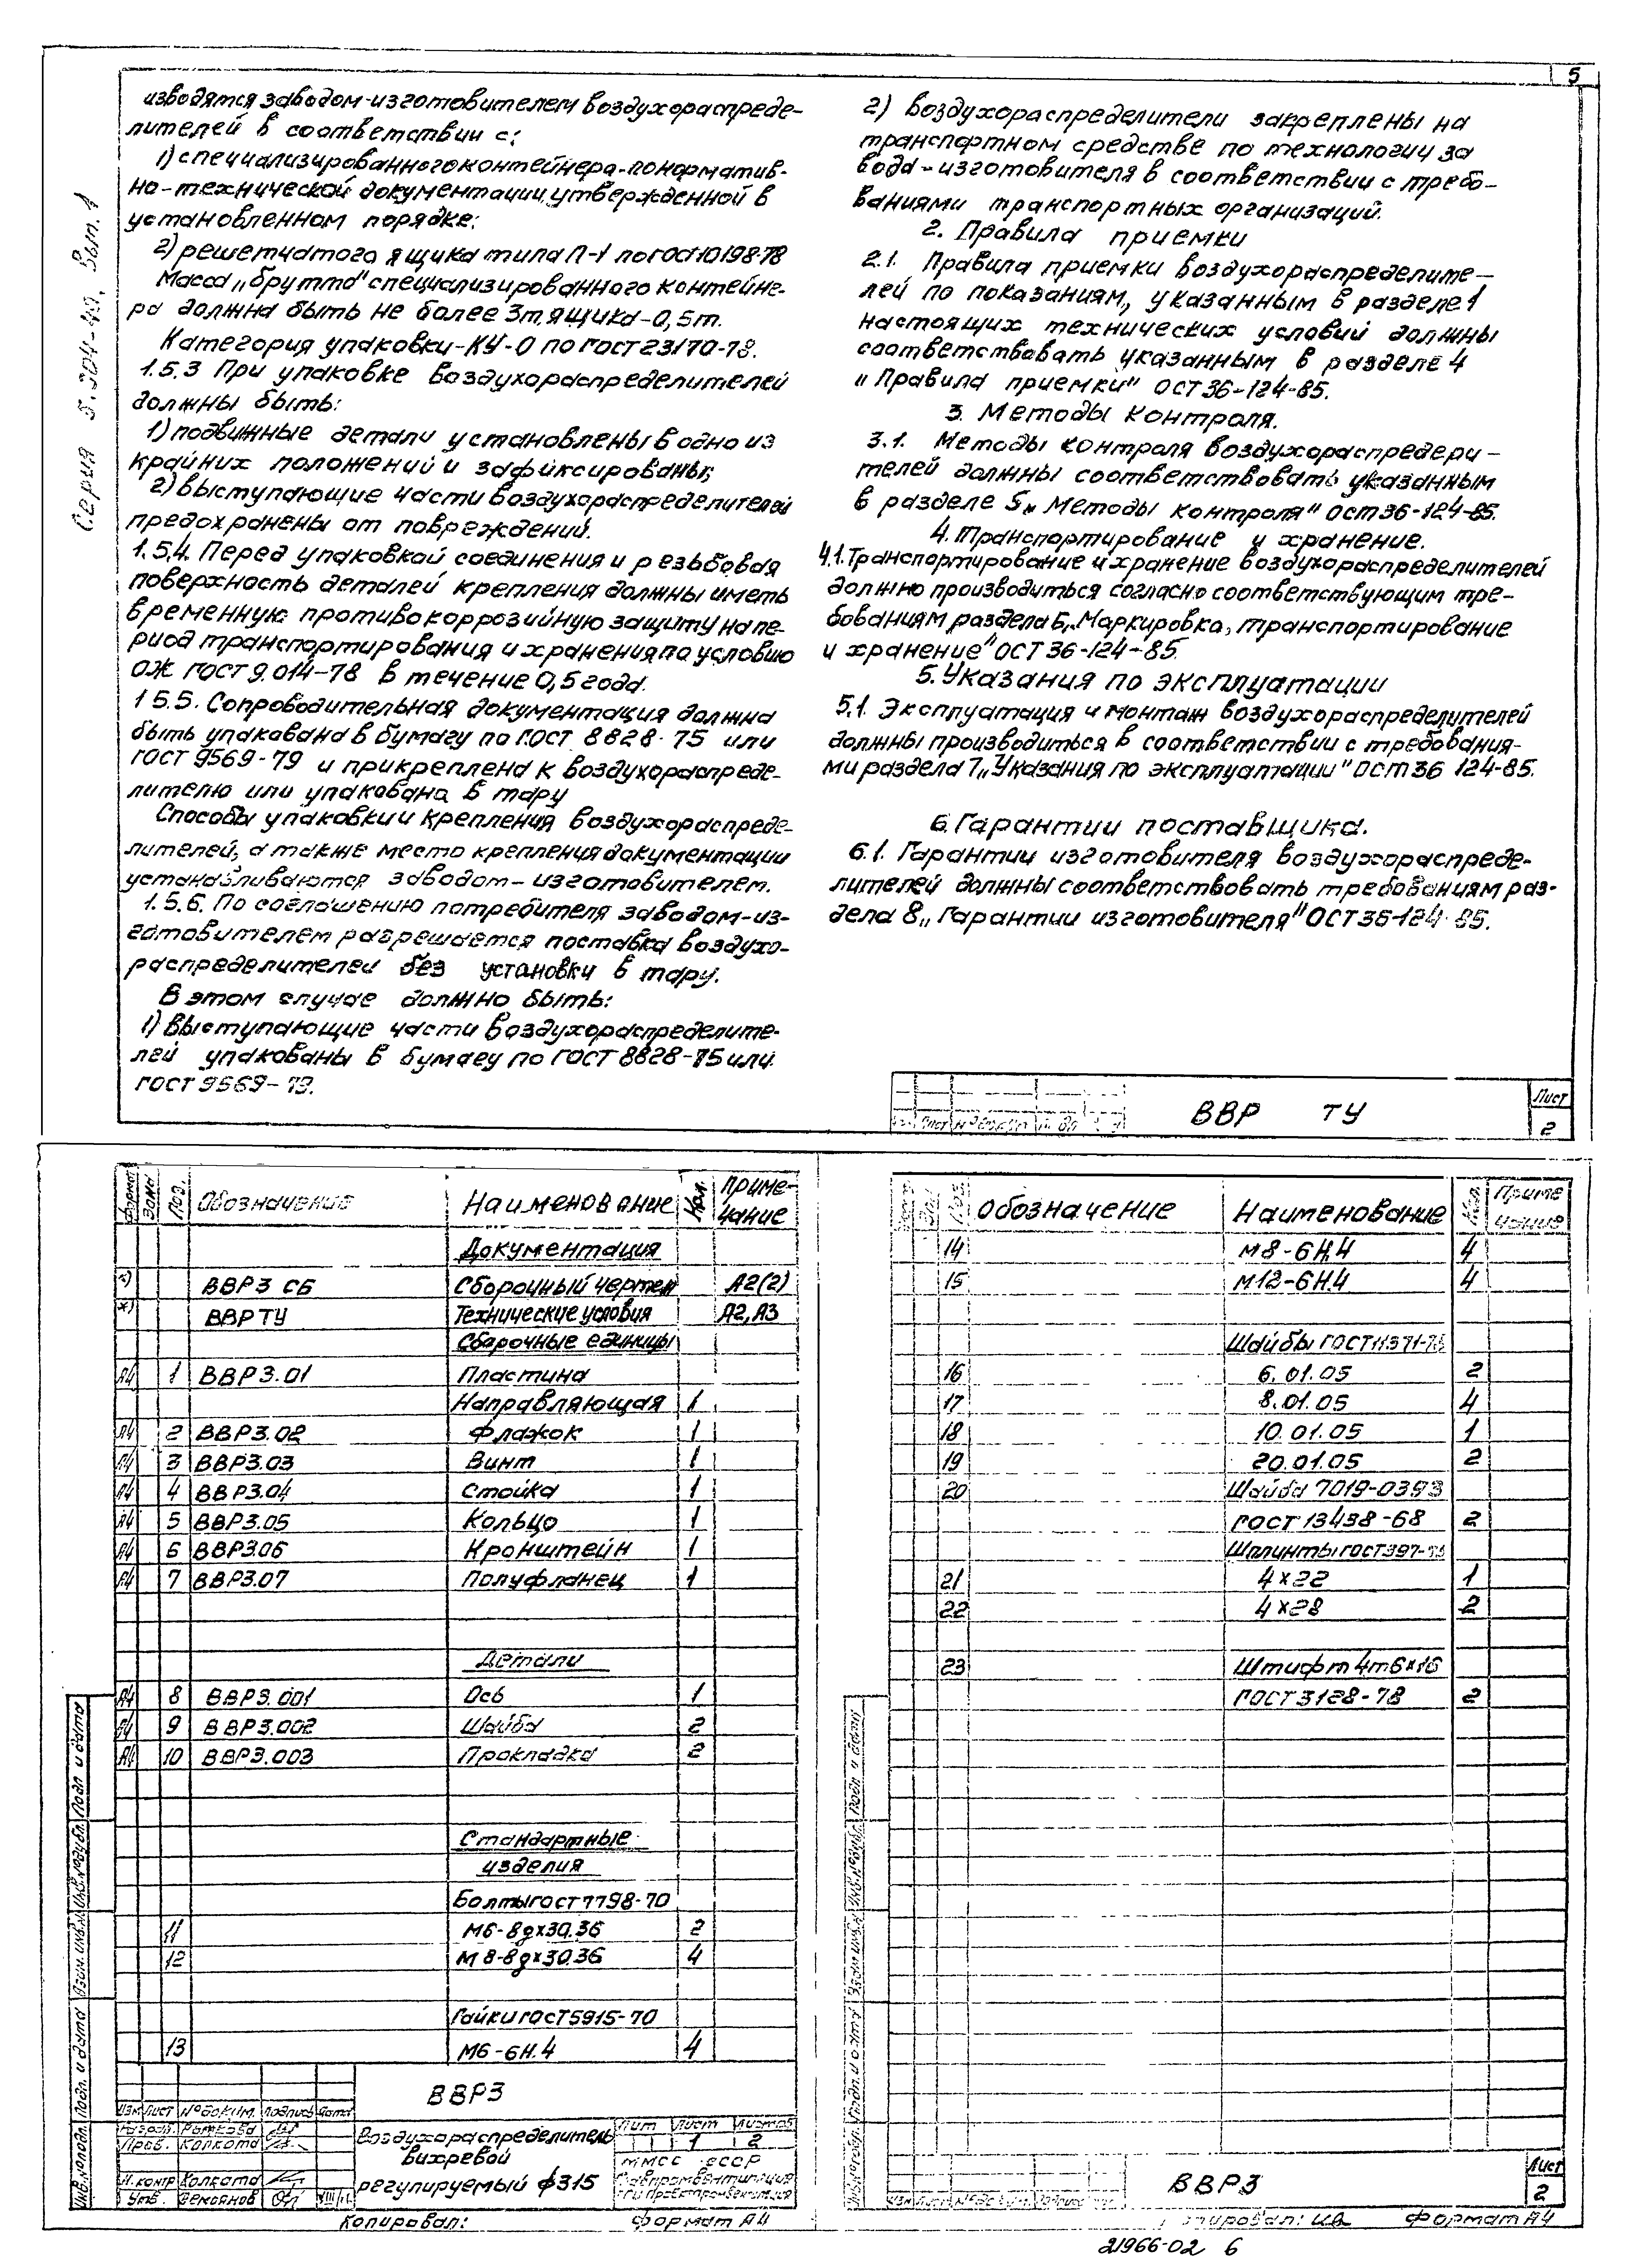 5
Серия 5.904-49. Вып. 1
изводятся заводом-изготовителем воздухораспреде-
лителей в соответствии с:
1) специализированного контейнера-по норматив-
но-технической документации, утвержденной в
установленном порядке;
2) решетчатого ящика типа П-1 по ГОСТ 10198-78
Масса „брутто" специализированного контейне-
ра должна быть не более 3т, ящика-0,5т.
Категория упаковки-КУ-0 по ГОСТ 23170-78.
1.5.3 При упаковке воздухораспределителей
должны быть:
1) подвижные детали установлены в одно из
крайних положений и зафиксированы;
2) выступающие части воздухораспределителей
предохранены от повреждений.
1.5.4. Перед упаковкой соединения и резьбовая
поверхность деталей крепления должны иметь
временную противокоррозийную защиту на пе-
риод транспортирования и хранения по условию
ОЖ ГОСТ 9.014-78 в течение 0,5 года.
1.5.5. Сопроводительная документация должна
быть упакована в бумагу по ГОСТ 8828-75 или
ГОСТ 9569-79 и прикреплена к воздухораспреде-
лителю или упакована в тару
Способы упаковки и крепления воздухораспреде-
лителей, а также место крепления документации
устанавливаются заводом-изготовителем.
1.5.6. По соглашению потребителя заводом-из-
готовителем разрешается поставка воздухо-
распределителей без установки в тару.
В этом случае должно быть:
1) выступающие части воздухораспределите-
лей упакованы в бумагу по ГОСТ 8828-75 или
ГОСТ 9569-79.
2) воздухораспределители закреплены на
транспортном средстве по технологии за
вода-изготовителя в соответствии с требо-
ваниями транспортных организаций.
2. Правила приемки
2.1. Правила приемки воздухораспределите-
лей по показаниям, указанным в разделе 1
настоящих технических условий должны
соответствовать указанным в разделе 4
„Правила приемки" ОСТ 36-124-85.
3. Методы контроля.
3.1. Методы контроля воздухораспредери-
телей должны соответствовать указанным
в разделе 5„ Методы контроля" ОСТ 36-124-85.
4. Транспортирование и хранение.
4.1. Транспортирование и хранение воздухораспределителей
должно производиться согласно соответствующим тре-
бованиям раздела 6„Маркировка, транспортирование
и хранение" ОСТ 36-124-85.
5. Указания по эксплуатации
5.1. Эксплуатация и монтаж воздухораспределителей
должны производиться в соответствии с требования-
ми раздела 7„Указания по эксплуатации" ОСТ 36 124-85.
6. Гарантии поставщика.
6.1. Гарантии изготовителя воздухораспреде-
лителей должны соответствовать требованиям раз-
дела 8„ Гарантии изготовителя" ОСТ 36-124-85.
ВВР ТУ
Лист
2
Формат Зона Поз. Обозначение Наименование Кол. Приме-
чание
Документация
*) ВВР3 СБ Сборочный чертеж А2(2)
*) ВВР ТУ Технические условия А2, А3
Сборочные единицы
А4 1 ВВР3.01 Пластина
Направляющая 1
А4 2 ВВР3.02 Флажок 1
А4 3 ВВР3.03 Винт 1
А4 4 ВВР3.04 Стойка 1
А4 5 ВВР3.05 Кольцо 1
А4 6 ВВР3.06 Кронштейн 1
А4 7 ВВР3.07 Полуфланец 1
Детали
А4 8 ВВР3.001 Ось 1
А4 9 ВВР3.002 Шайба 2
А4 10 ВВР3.003 Прокладка 2
Стандартные
изделия
Болты ГОСТ 7798-70
11 М6-8gх30.36 2
12 М8-8gх30.36 4
Гайки ГОСТ 5915-70
13 М6-6Н.4 4
Подп. и дата
Инв.№дубл.
Взам. инв.№
Подп. и дата
Инв.№подл.
ВВР3
Изм Лист № докум. Подпись Дата
Разраб. Рыжкова
Пров. Колкота
Н.контр Колкота
Утв.
Воздухораспределитель
вихревой
регулируемый ф315
Лит Лист Листов
1 2
ММСС СССР
Копировал: Формат А4
Поз. Обозначение Наименование Кол. Приме
чание
14 М8-6Н.4 4
15 М12-6Н.4 4
Шайбы ГОСТ 11371-78
16 6.01.05 2
17 8.01.05 4
18 10.01.05 1
19 20.01.05 2
20 Шайба 7019-0393
ГОСТ 13438-68 2
Шплинты ГОСТ 397-79
21 4х22 1
22 4х28 2
23 Штифт 4m6х16
ГОСТ 3128-78 2
Подп. и дата
ВВР3
Лист
2
Копировал: Формат А4
21966-02 6